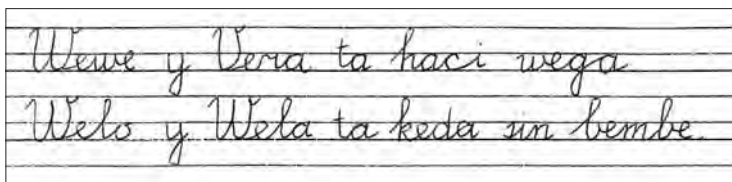 Wewe y Vera ta haci wega
Welo y Wela ta keda sin bembe.